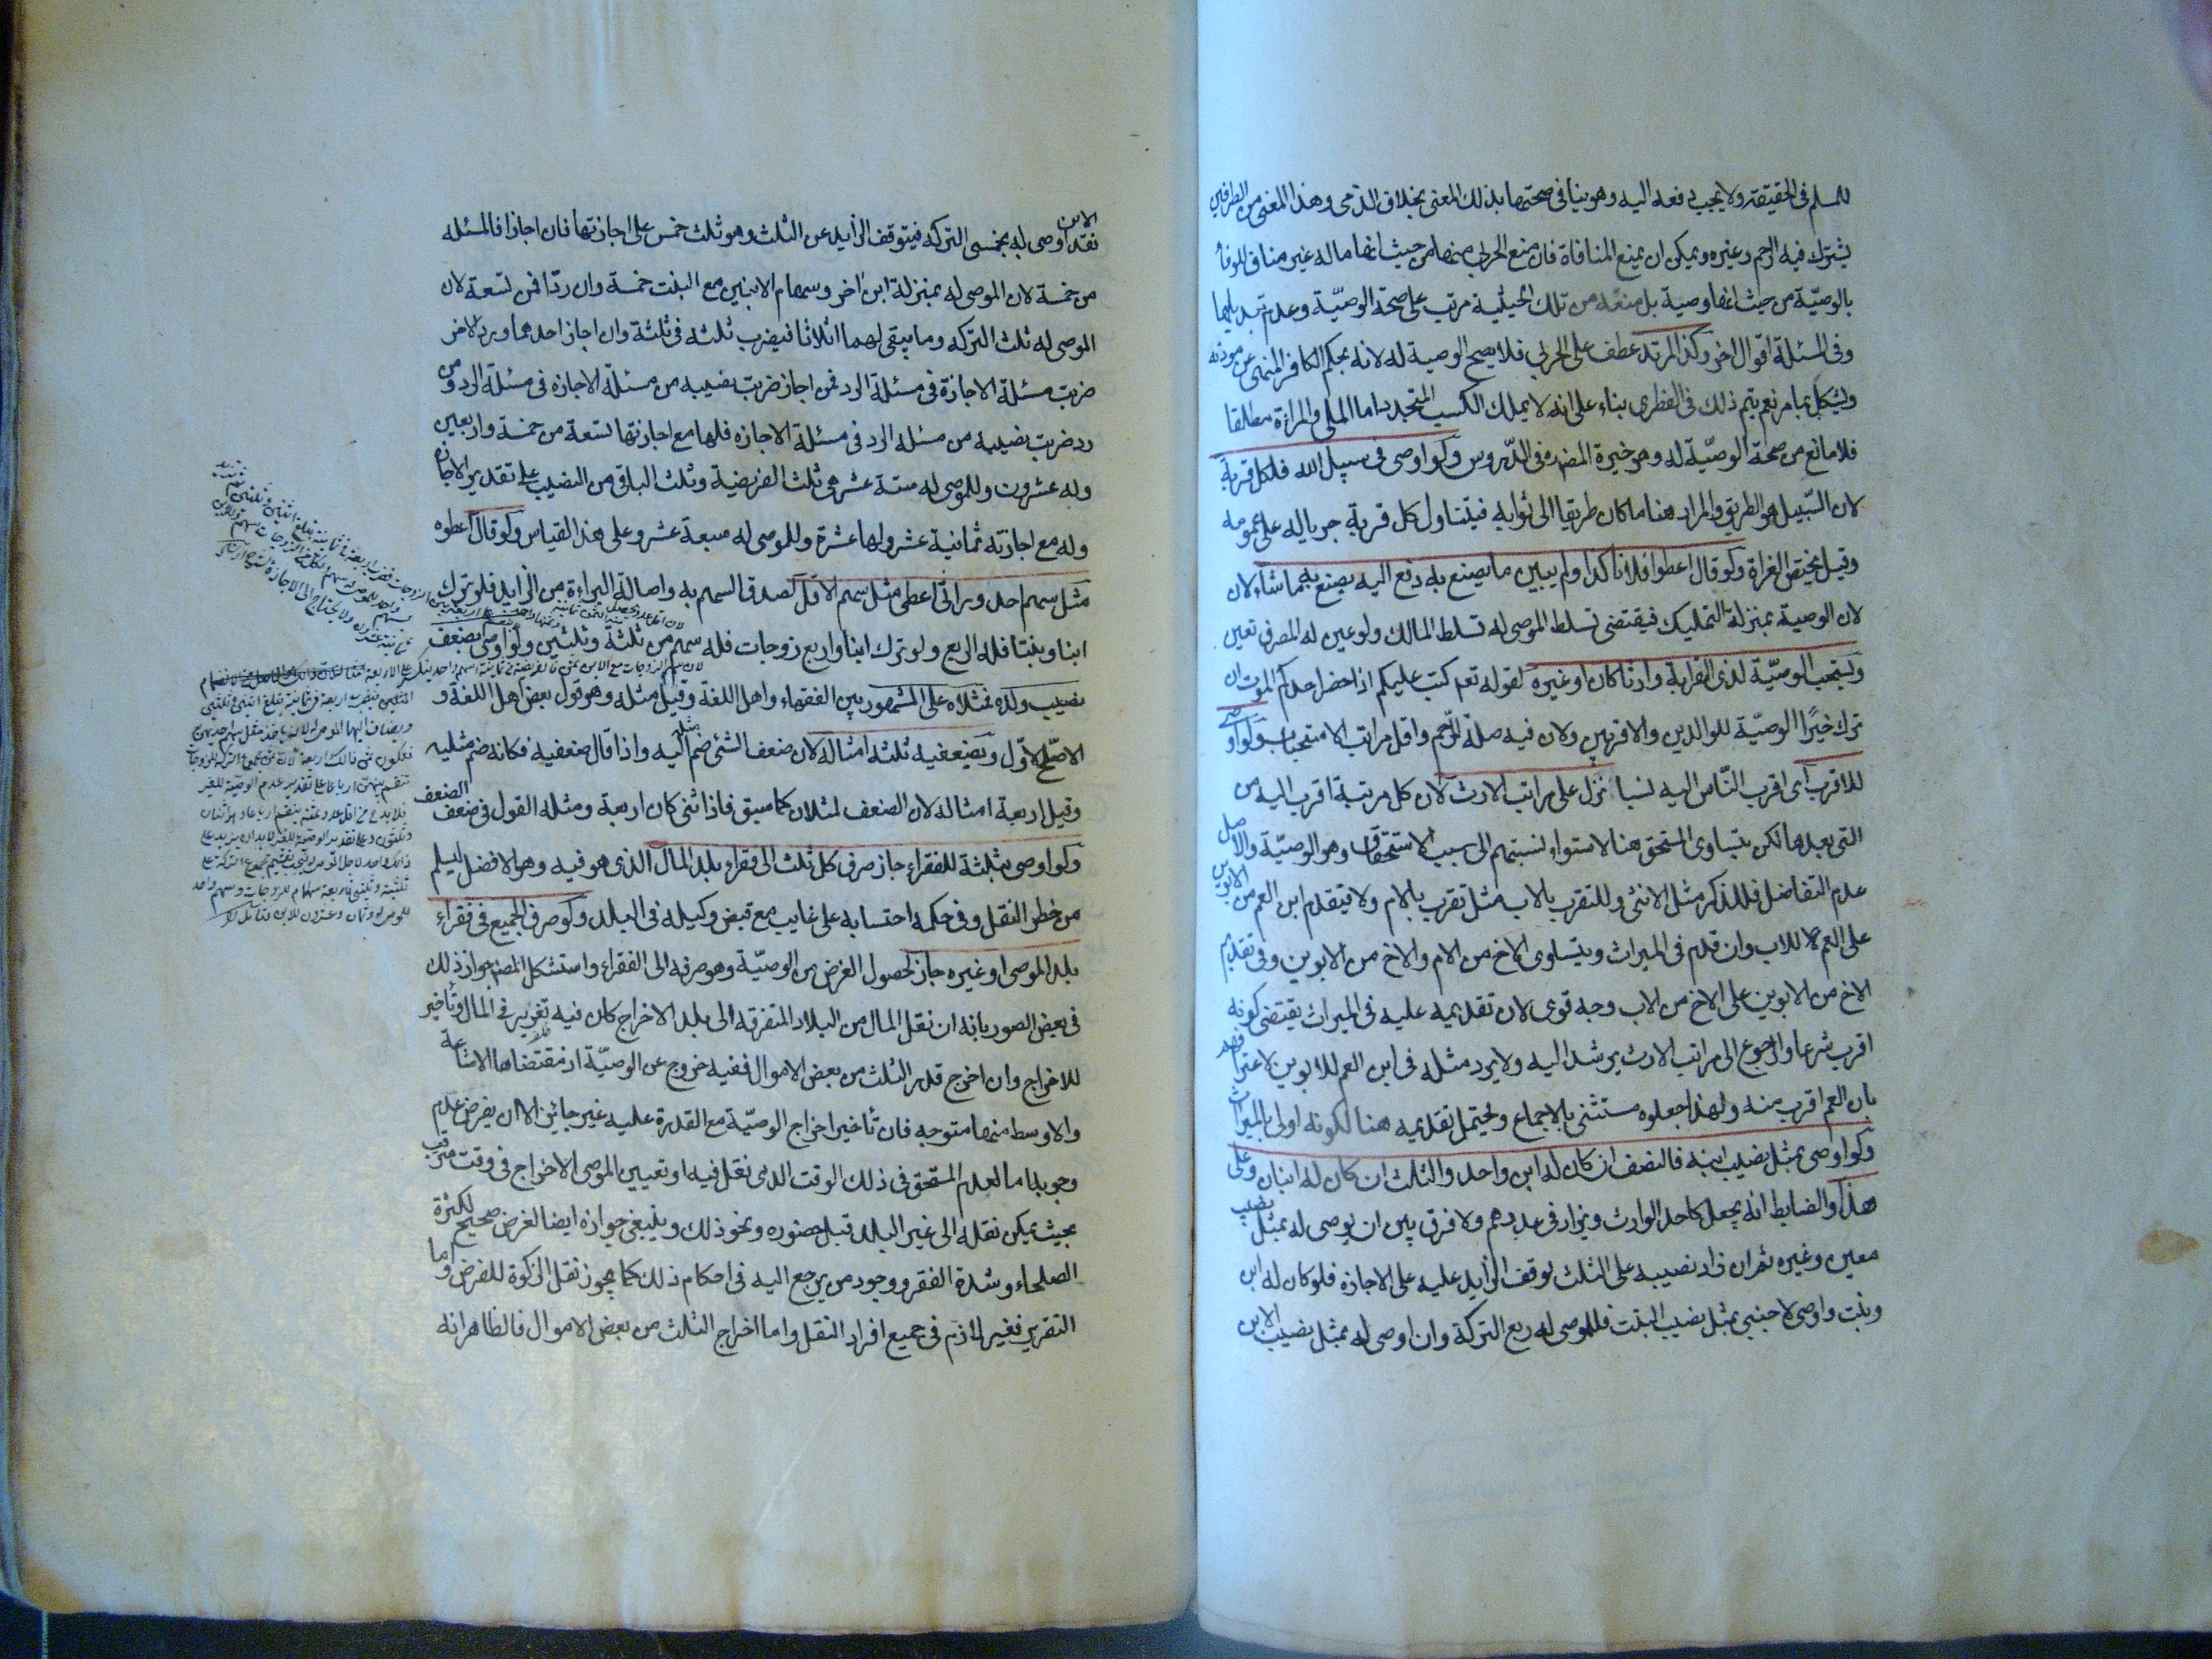 للمسلم فى الحقيقة ولا يجب دفعه اليه وهو ينافى صحتها بذلك المعنى بخلاف الذمى وهذا المعنى من الطرفين
يشترك فيه الرحم وغيره ويمكن ان يمنع المنافاة فان منع الحربى منها من حيث انها ماله غير مناف للوفاء
بالوصيّة من حيث انها وصية بل منعه من تلك الحيثية مرتب على صحة الوصيّة وعدم تبديلها
وفى المسئلة اقوال اخر وكذا المرتد عطف على الحربى فلا يصح الوصية له لانه بحكم الكافر المنهى عن مودته
ويشكل بما مر نعم يتم ذلك فى الفطرى بناء على انه لا يملك الكسب المتجدد اما الملى والمراة مطلقا
فلا مانع من صحة الوصيّة له وهو خيرة المضـ ره فى الدّروس ولو اوصى فى سبيل الله فلكل قربة
لان السّبيل هو الطريق والمراد هنا ما كان طريقا الى ثوابه فيتناول كل قربة جريا له على عمومه
وقيل يختص الغزاة ولو قال اعطوا فلانا كذا ولم يبين ما يصنع به دفع اليه يصنع به ما شاء لان
لان الوصية بمنزلة التمليك فيقتضى تسلط الموصى له تسلط المالك ولو عين له المصرف تعين
ويستحب الوصيّة لذى القرابة وارثا كان او غيره لقوله تعم كتب عليكم اذا حضر احدكم الموت ان
ترك خيرًا الوصيّة للوالدين والاقربين ولان فيه صلة الرّحم واقل مراتب الاستحباب ولو اوصى
للاقرب اى اقرب النّاس اليه نسبا نزّل على مراتب الارث لان كل مرتبة اقرب اليه من
التى بعدها لكن يتساوى المستحق هنا لاستواء نسبتهم الى سبب الاستحقاق وهو الوصيّة والاصل
عدم التفاضل فللذكر مثل الانثى وللتقرب بالاب مثل تقرب بالام ولا يتقدم ابن العم من الابوين
على العم للاب وان قدم فى الميراث ويتساوى الاخ من الام والاخ من الابوين وفى تقديم
الاخ من الابوين على الاخ من الاب وجه قوى لان تقديمه عليه فى الميراث يقتضى كونه
اقرب شرعا والرجوع الى مراتب الارث يرشد اليه ولا يرد مثله فى ابن العم للابوين لاعترافهم
بان العم اقرب منه ولهذا جعلوه مستثنى بالاجماع ويحتمل تقديمه هنا لكونه اولى بالميراث
ولو اوصى بمثل نصيب ابنه فالنصف ان كان له ابن واحد والثلث ان كان له ابنان وعلى
هذا والضابط انه يجعل كاحد الوارث ويزاد فى عددهم ولا فرق بين ان يوصى له بمثل نصيب
معين وغيره ثم ان زاد نصيبه على الثلث توقف الزايد عليه على الاجازه فلو كان له ابن
وبنت واوصى لاجنبى بمثل نصيب البنت فللموصى له ربع التركة وان اوصى له بمثل نصيب الابن
الابن
فقد اوصى له بخمسى التركه فيتوقف الزايد عن الثلث وهو ثلث خمس على اجازتهما فان اجازا فالمسئله
من خمسة لان الموصى له بمنزلة ابن اخر وسهام الابنين مع البنت خمسة وان ردّا فمن تسعة لان
الموصى له ثلث التركه وما يبقى لهما اثلاثا فيضرب ثلثه فى ثلثة وان اجاز احدهما ورد الاخر
ضربت مسئلة الاجازة فى مسئلة الرد فمن اجاز ضربت نصيبه من مسئلة الاجازه فى مسئلة الرد ومن
رد ضربت نصيبه من مسئله الرد فى مسئلة الاجازه فلها مع اجازتها تسعة من خمسة واربعين
وله عشرون وللموصى له ستة عشر هى ثلث الفريضية وثلث الباقى من النصيب على تقدير الاجازه
وله مع اجازته ثمانية عشر ولها عشرة وللموصى له سبعة عشر وعلى هذا القياس ولو قال اعطوه
مثل سهم احد ورّاثى اعطى مثل سهم الاقل لصدق السهم به واصالة البراءة من الزايد فلو ترك
ابنا وبنتا فله الربع ولو ترك ابنا واربع زوجات فله سهم من ثلثة وثلثين ولو اوصى بضعف
نصيب ولده فمثلاه على المشهور بين الفقهاء واهل اللغة وقيل مثله وهو قول بعض اهل اللغة و
الاصّح الاوّل وبضعفيه ثلثه امثاله لان ضعف الشئ ضم مثله اليه واذا قال ضعفيه فكانه ضم مثليه
وقيل اربعة امثاله لان الضعف لمثلان كما سبق فاذا ثنى كان اربعة ومثله القول فى ضعف الضعف
ولو اوصى بثلثة للفقراء جاز صرف كل ثلث الى فقراء بلد المال الذى هو فيه وهو الافضل ليسلم
من خطر النقل وفى حكمه احتسابه على غايب مع قبض وكيله فى البلد ولو صرف الجميع فى فقراء
بلد الموصى او غيره جاز لحصول الغرض من الوصيّة وهو صرفه الى الفقراء واستشكل المضـ جواز ذلك
فى بعض الصور بانه ان نقل المال من البلاد المتفرقه الى بلد الاخراج كان فيه تغرير فى المال وتأخير
للاخراج وان اخرج قدر الثلث من بعض الاموال ففيه خروج عن الوصيّة اذ مقتضاها الاشاعة
والاوسط منها متوجه فان تأخير اخراج الوصيّة مع القدرة عليه غير جائز الا ان يفرض عدم
وجوبه اما لعدم المستحق فى ذلك الوقت الذى نقل فيه او تعيين الموصى الاخراج فى وقت مترقب
بحيث يمكن نقله الى غير البلد قبل حضوره ونحو ذلك وينبغى جوازه ايضا لغرض صحيح لكثرة
الصلحاء وشدة الفقر ووجود من يرجع اليه فى احكام ذلك كما يجوز نقل الزكوة للغرض واما
التغرير فغير لازم فى جميع افراد النقل واما اخراج الثلث من بعض الاموال فالظاهر انه